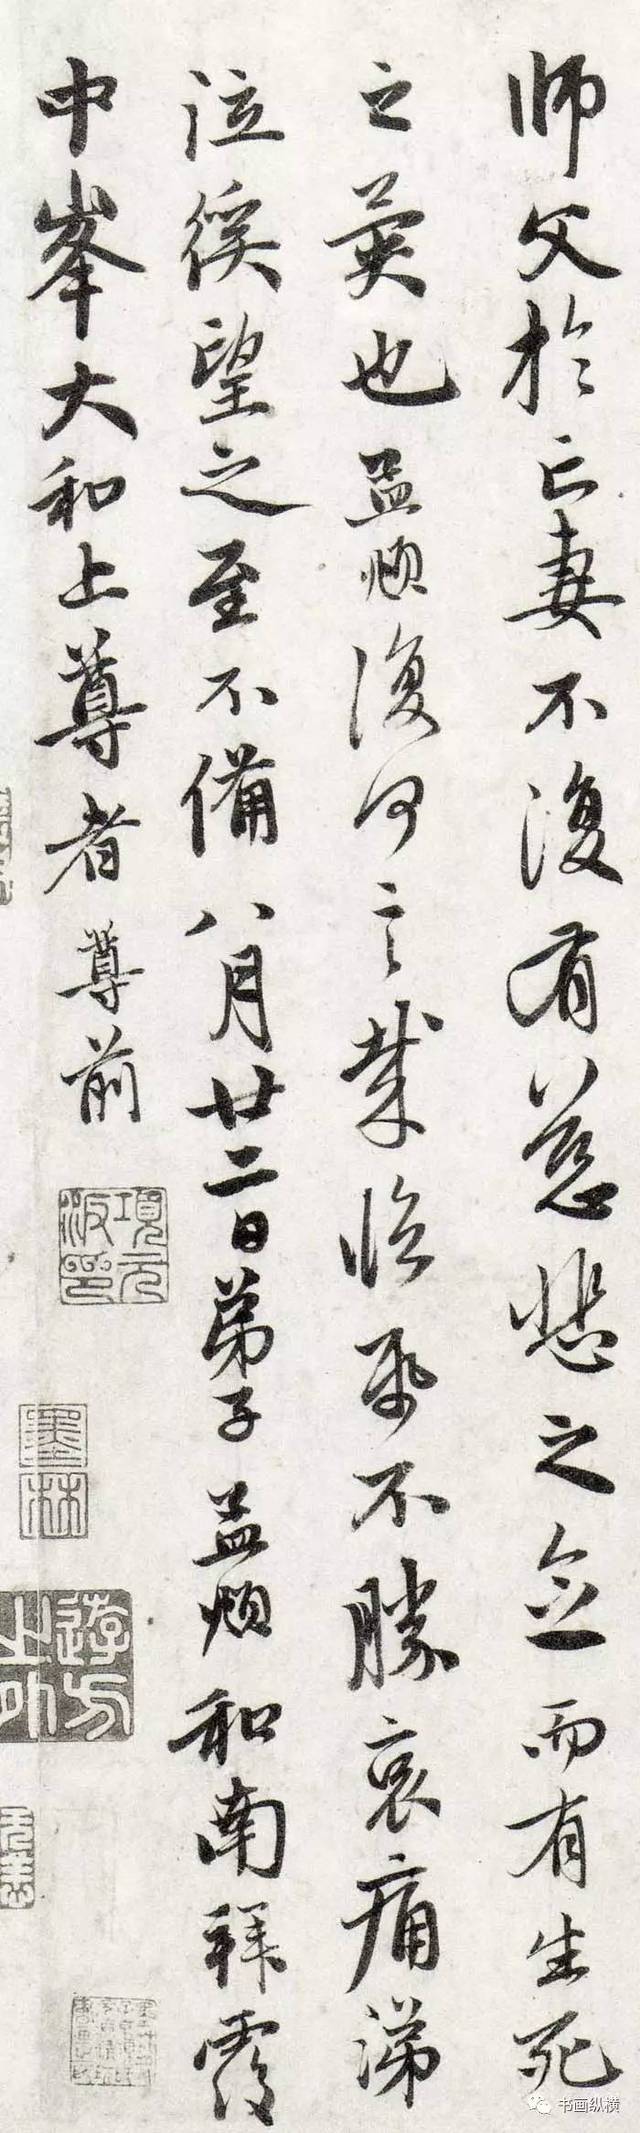 师父於亡妻不復有慈悲之念而有生死
之異也孟頫復何言哉臨紙不勝哀痛涕
泣徯望之至不備八月廿二日弟子孟頫和南拜覆
中峯大和上尊者尊前
項元汴印
墨林
书画纵横